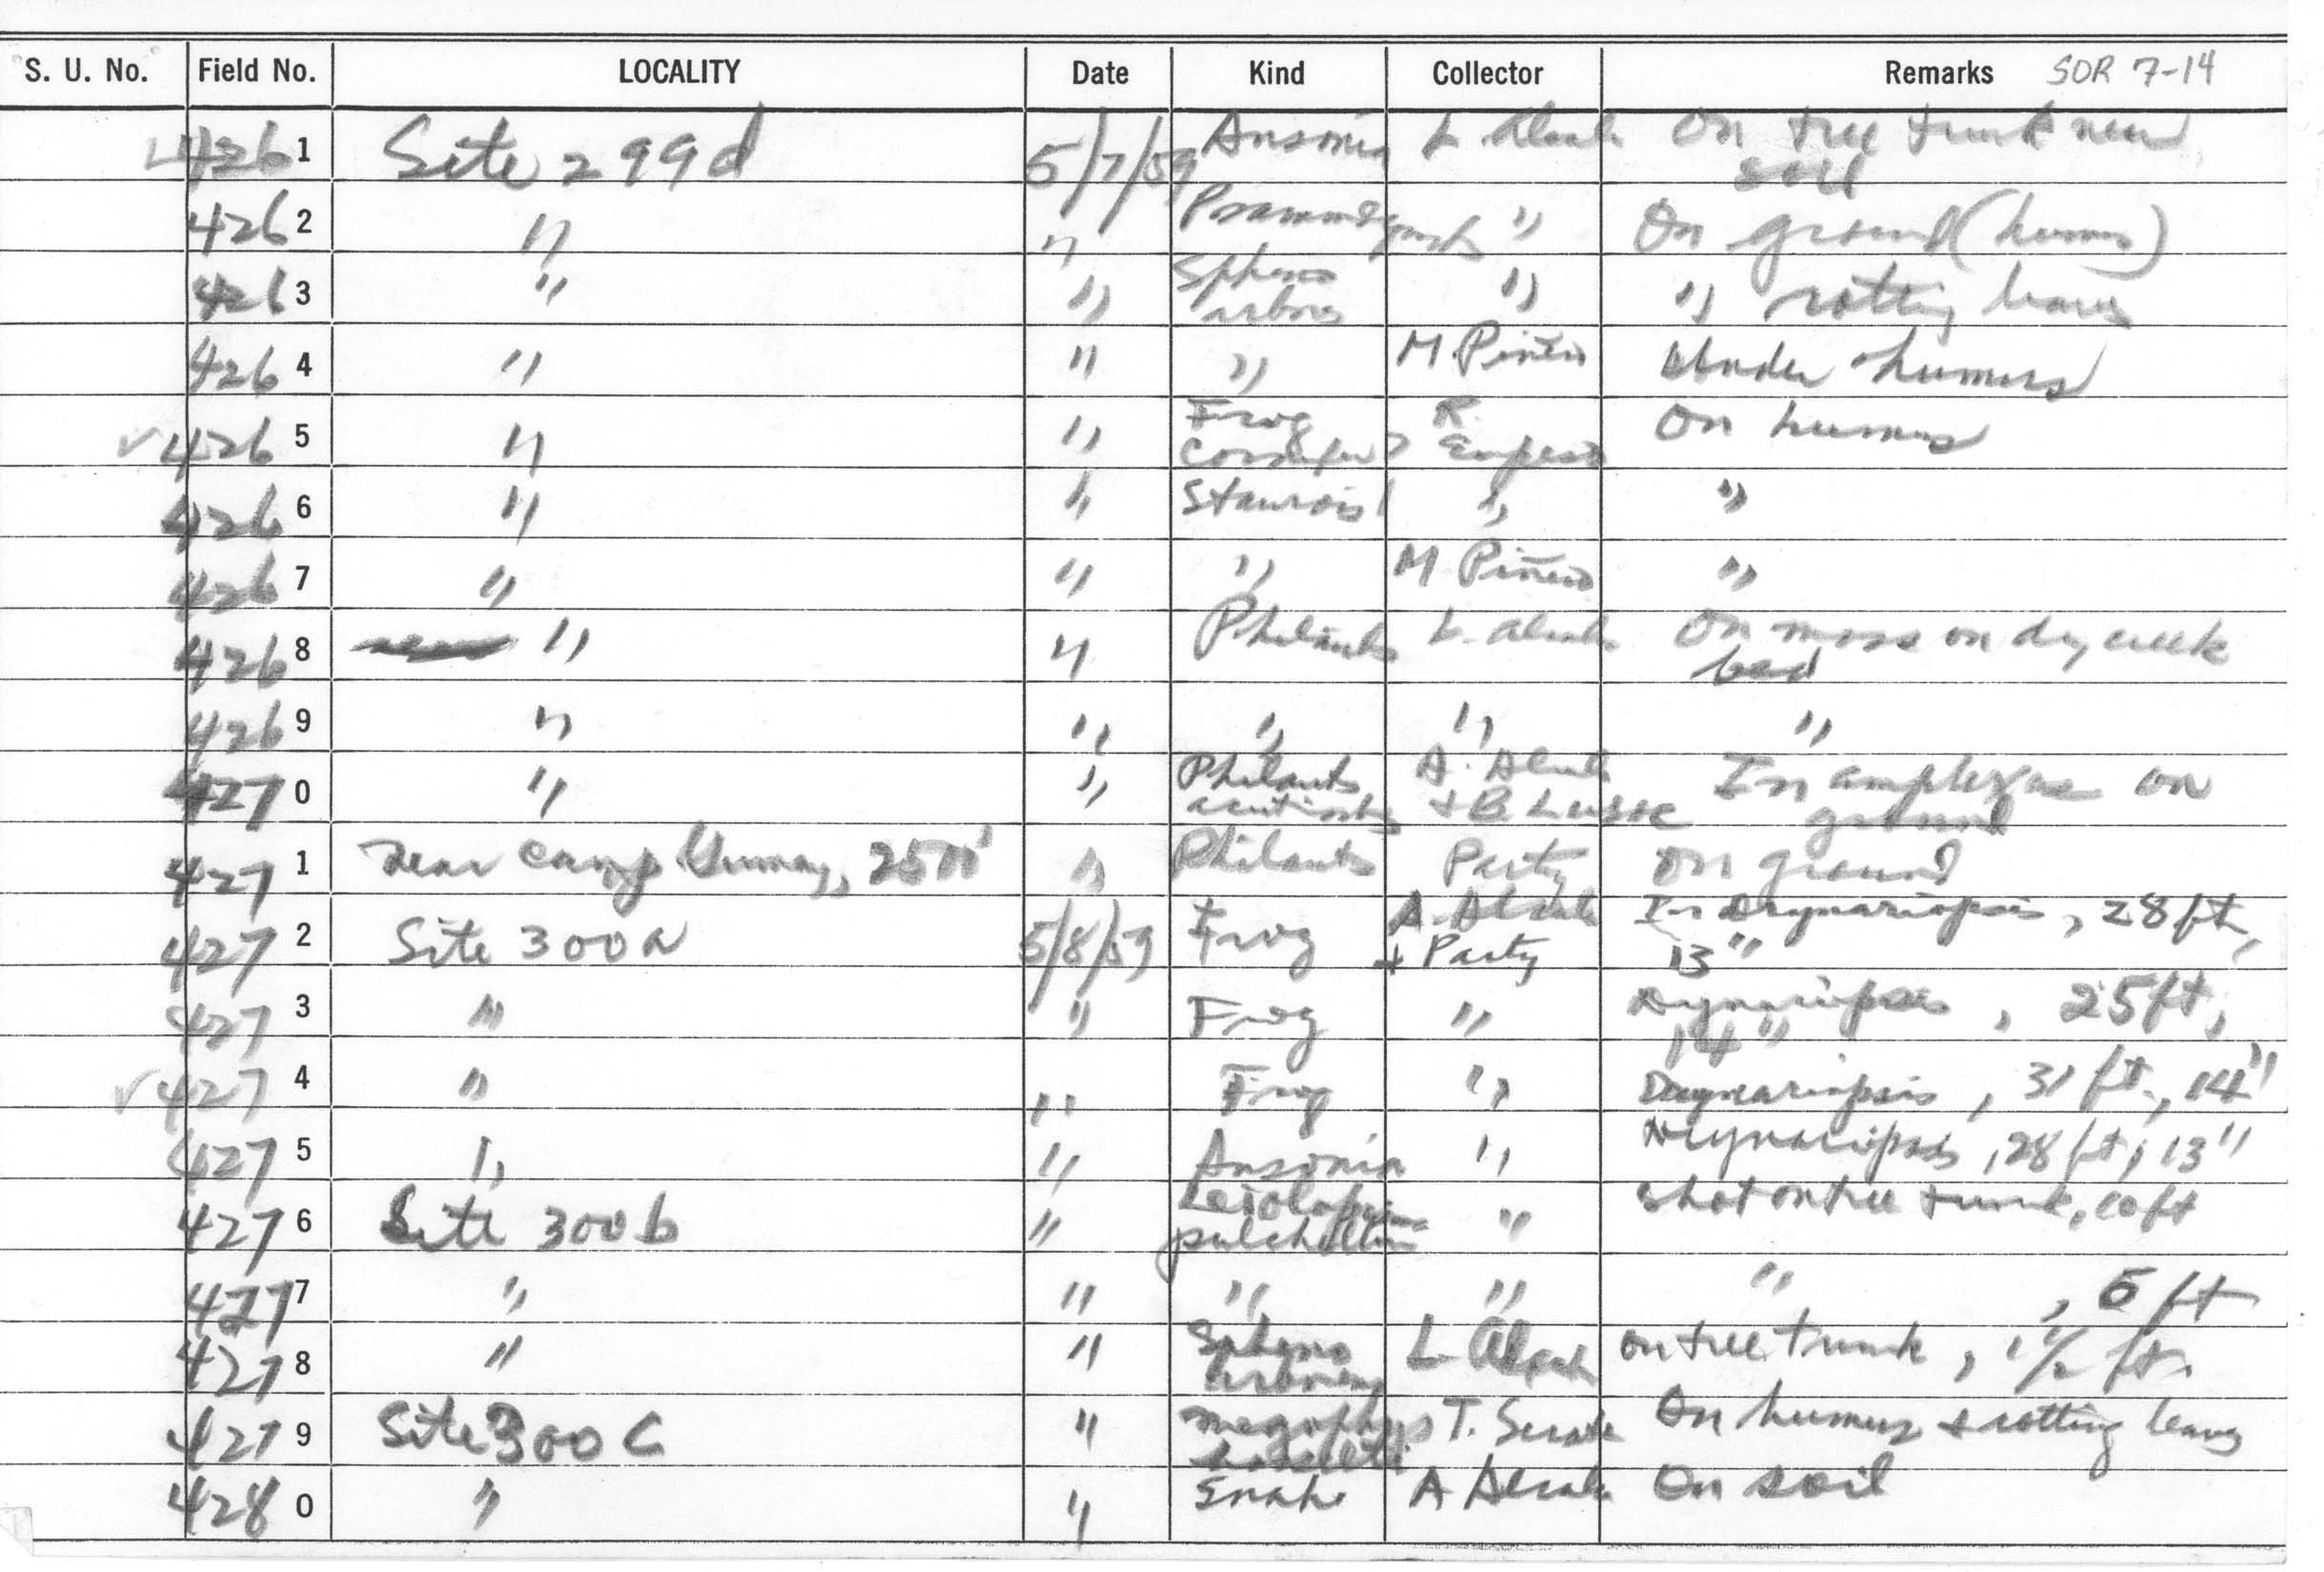 S. U. No. Field No. LOCALITY Date Kind Collector Remarks SOR 7-14
4261 Site 299d 5/7/59 Ansonia L. Alcala On tree trunk near
soil
4262 " " " On ground (humus)
4263 " " Spheno " " rotting leaves
arbores
4264 " " " M Piñero Under humus
✓ 4265 " " Frog R. On humus
Cornufer? Empeso
4266 " " Staurois " "
4267 " " " M Piñero "
4268 " " Philauts L. Alcala On moss on dry creek
bed
4269 " " " " "
4270 " " Philauts A. Alcala In amplexus on
+ B. ground
4271 near camp 2500' " Philauts Party On ground
4272 Site 300a 5/8/59 Frog A. Alcala In Drynariopsis, 28 ft,
+ Party 13"
4273 " " Frog " Drynariopsis, 25 ft,
14"
✓ 4274 " " Frog " Drynariopsis, 31 ft., 14"
4275 " " Ansonia " Drynariopsis, 28 ft, 13"
4276 Site 300b " Leiolopisma " shot on tree trunk,
pulchellum
4277 " " " " " , 6 ft
4278 " " Spheno L. Alcala on tree trunk, 1 1/2 ft.
4279 Site 300C " Megophrys T. On humus & rotting leaves
hasselti
4280 " " Snake A Alcala On soil